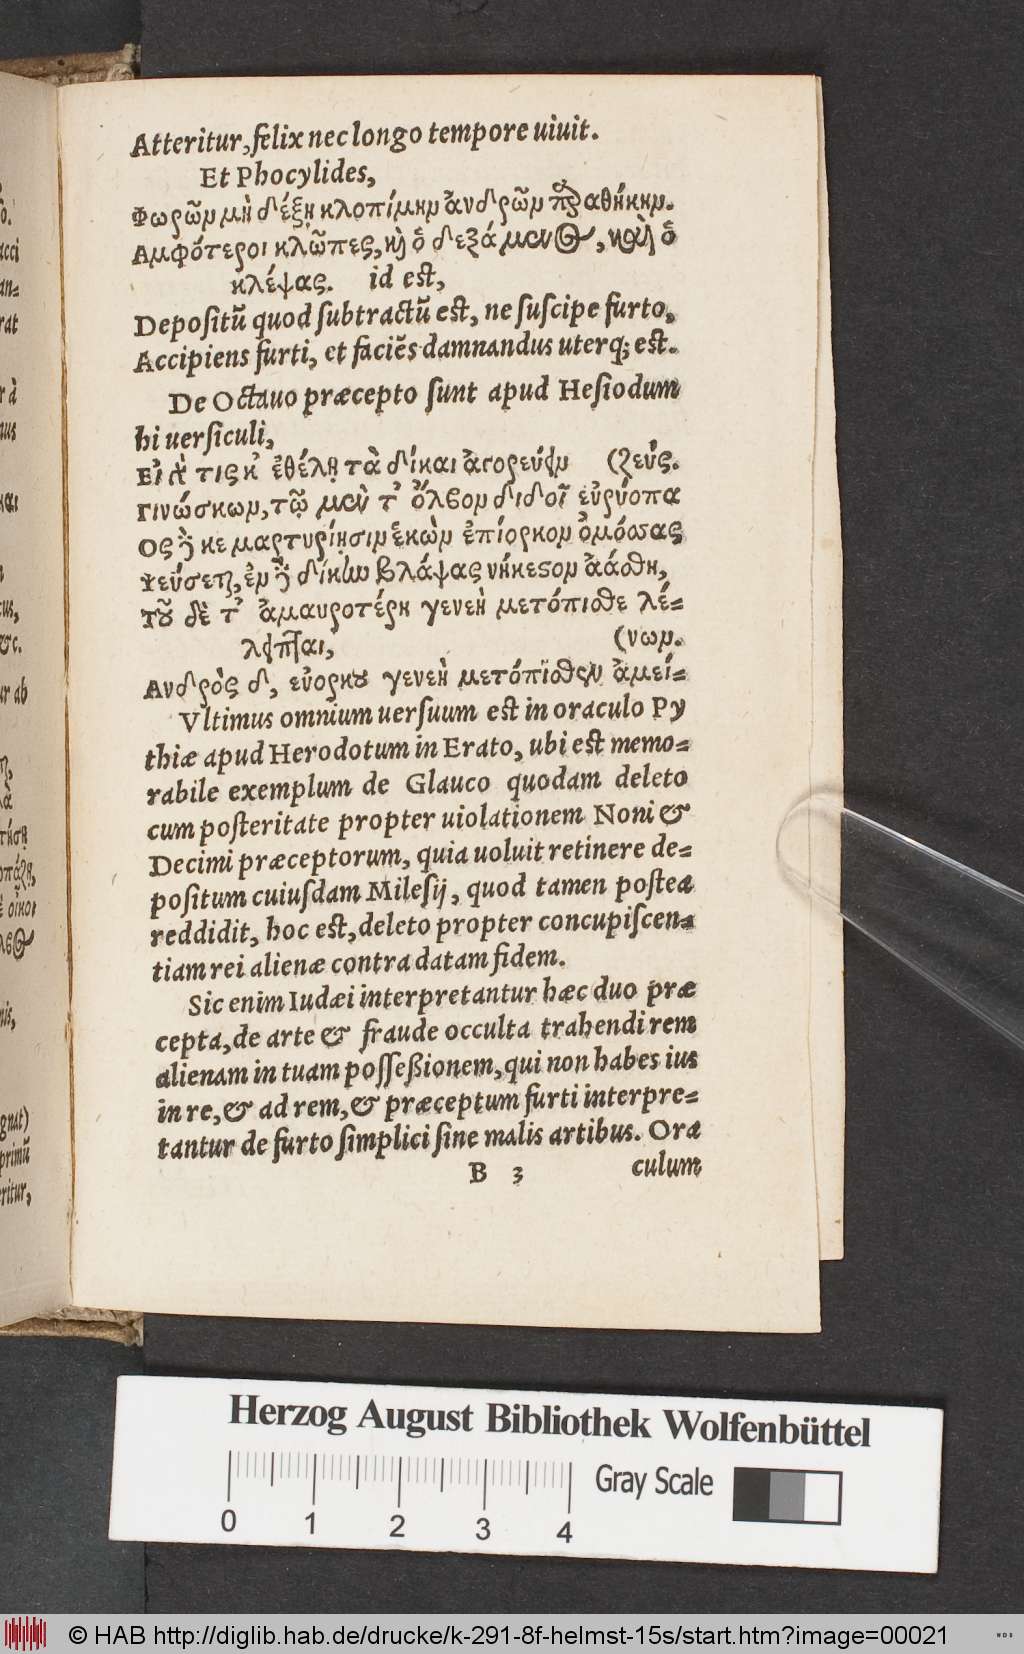 Atteritur, felix nec longo tempore uiuit.
Et Phocylides,
Φωρῶν μὴ δέξῃ κλοπίμην ἀνδρῶν παραθήκην.
Αμφότεροι κλῶπες, καὶ ὁ δεξάμενος, καὶ ὁ
κλέψας. id est,
Depositũ quod subtractũ est, ne suscipe furto,
Accipiens furti, et faciẽs damnandus uterq; est.
De Octauo præcepto sunt apud Hesiodum
hi uersiculi,
Εἰ γάρ τις κ' ἐθέλῃ τὰ δίκαι' ἀγορεύειν (ζεύς.
Γινώσκων, τῷ μὲν τ' ὄλβον διδοῖ εὐρύοπα
Ος δέ κε μαρτυρίῃσιν ἑκὼν ἐπίορκον ὀμόσσας
Ψεύσεται, ἐν δὲ δίκην βλάψας νήκεστον ἀάσθη,
Τοῦ δὲ τ' ἀμαυροτέρη γενεὴ μετόπισθε λέ-
λειπται, (νων.
Ανδρὸς δ', εὐόρκου γενεὴ μετόπισθεν ἀμεί-
Vltimus omnium uersuum est in oraculo Py
thiæ apud Herodotum in Erato, ubi est memo-
rabile exemplum de Glauco quodam deleto
cum posteritate propter uiolationem Noni &
Decimi præceptorum, quia uoluit retinere de-
positum cuiusdam Milesij, quod tamen postea
reddidit, hoc est, deleto propter concupiscen-
tiam rei alienæ contra datam fidem.
Sic enim Iudæi interpretantur hæc duo præ
cepta, de arte & fraude occulta trahendi rem
alienam in tuam possessionem, qui non habes ius
in re, & ad rem, & præceptum furti interpre-
tantur de furto simplici sine malis artibus. Ora
B 3 culum
Herzog August Bibliothek Wolfenbüttel
Gray Scale
0 1 2 3 4
© HAB http://diglib.hab.de/drucke/k-291-8f-helmst-15s/start.htm?image=00021